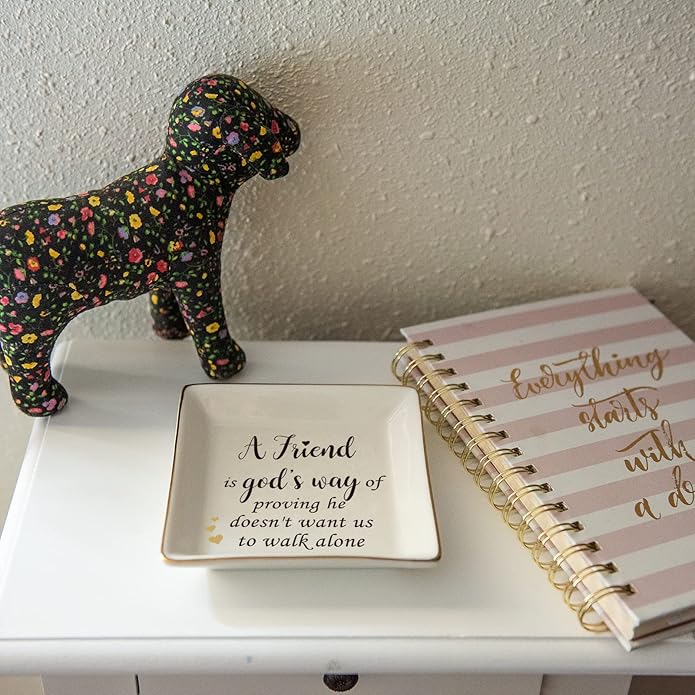 A Friend
is god's way of
proving he
doesn't want us
to walk alone
Everything
starts
with
a d